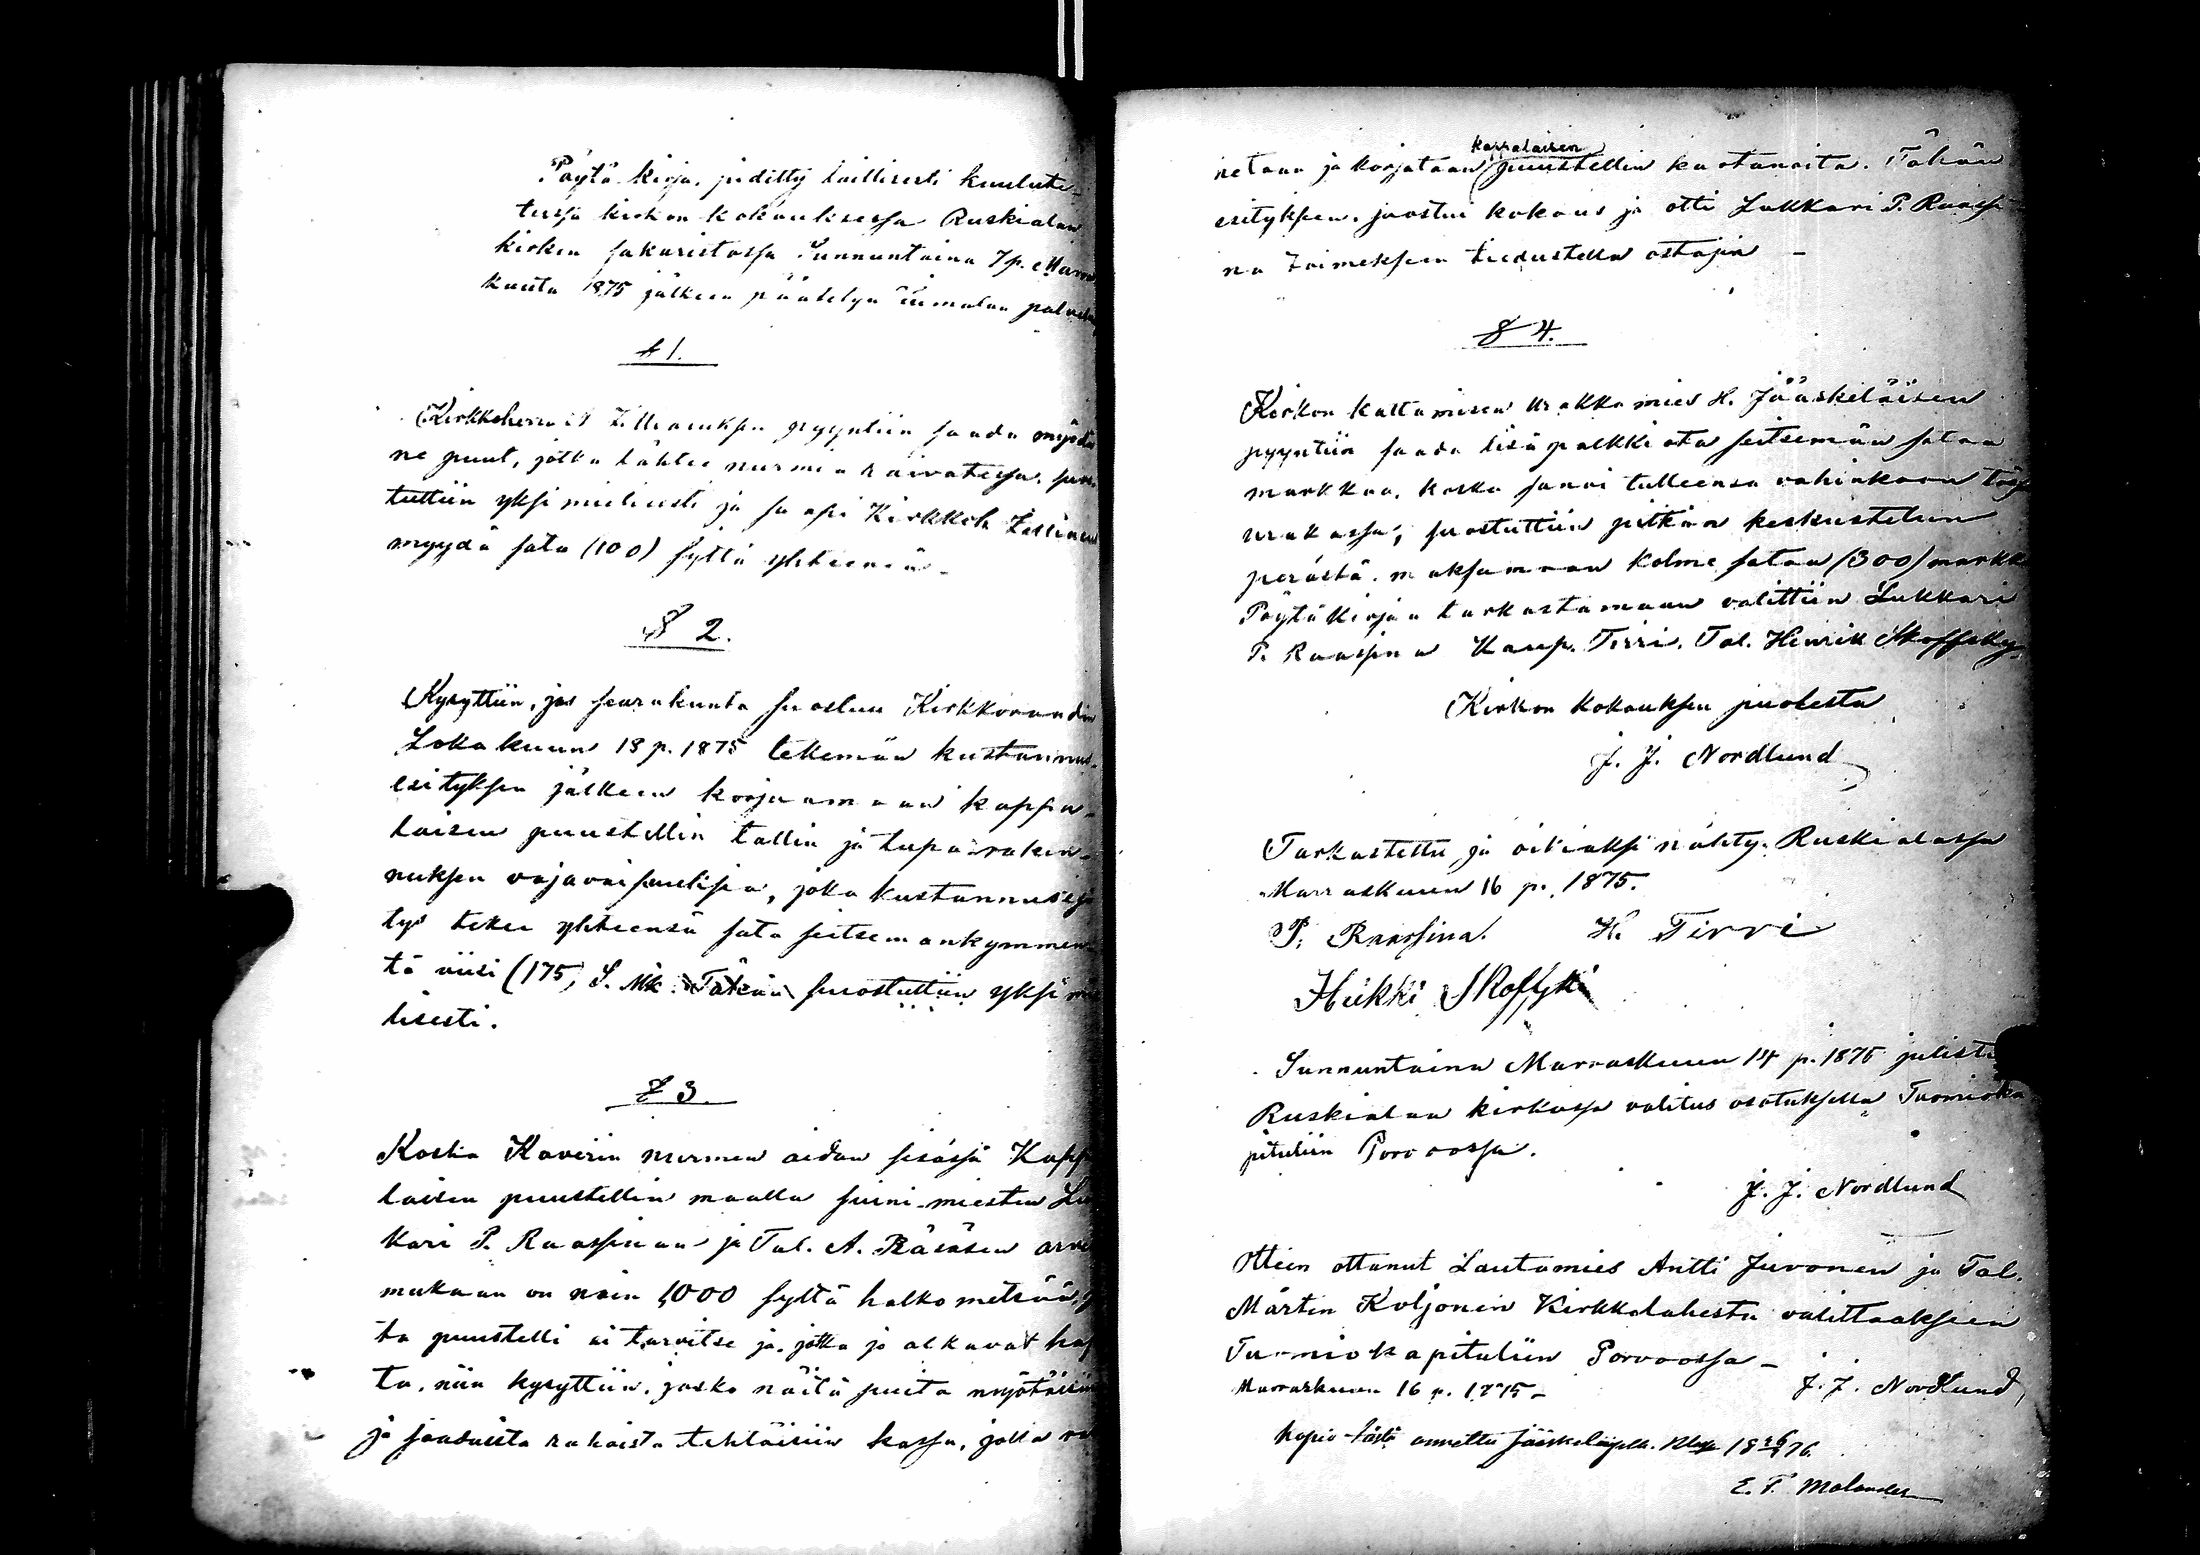 Pöytä-kirja, pidetty laillisesti kuulute-
tussa kirkon kokouksessa Ruskialan
kirkon sakaristossa Sunnuntaina 7 p. Marras
kuuta 1875 jälkeen päätetyn Jumalan palvelu
§ 1.
Kirkkoherra pyyntiin saada myödä
ne puut, jotka lähtee nurmia raivatessa, suos
tuttiin yksimielisesti ja saapi Kirkkoh
myydä sata (100) syltä yhteensä.
§ 2.
Kysyttiin, jos seurakunta suostuu Kirkkoraadin
Lokakuun 18 p. 1875 tekemän kustannus-
esityksen jälkeen korjaamaan kappa-
laisen puustellin tallin ja tuparaken-
nuksen vajavaisuuksia, joka kustannusesi
tys tekee yhteensä sata seitsemänkymmen
tä viisi (175) S. Mk. Tähän suostuttiin yksimie
lisesti.
§ 3.
Koska Kaverin nurmen aidan sisässä Kapp
laisen puustellin maalla syini-miesten Luk
kari P. Raassinan ja Tal. A. Räsäsen arvi
mukaan on noin 1000 syltä halkometsää, jo
ta puustelli ei tarvitse ja, jotka jo alkavat
ta, niin kysyttiin, josko näitä puita myötäisiin
ja saaduista rahoista tehtäisiin kassa, jolla ra
netaan ja korjataan kappalaisen puustellin kartanoita. Tähän
esityksen, suostui kokous ja otti Lukkari P. Raassi
na toimeksen tiedustella ostajia –
§ 4.
Kirkon kattamisen urakkamies H. Jääskeläisen
pyyntiin saada lisäpalkkiota seitsemän sataa
markkaa, koska sanoi tulleensa vahinkoon tässä
urakassa; suostuttiin pitkän keskustelun
perästä, maksamaan kolme sataa (300) markk
Pöytäkirjaa tarkastamaan valittiin Lukkari
P. Raassina Kaup. Tirri, Tal. Henrik Skoffsky.
Kirkon kokouksen puolesta
J. J. Nordlund
Tarkastettu ja oikiaksi nähty. Ruskialassa
Marraskuun 16 p. 1875.
P. Raassina. H. Tirri
Heikki Skoffski
Sunnuntaina Marraskuun 14 p. 1875 julistt
Ruskialan kirkossa valitus osotuksella Tuomioka
pituliin Porvoossa.
J. J. Nordlund
Otteen ottanut Lautamies Antti Juvonen ja Tal.
Mårten Koljonen Kirkkolahesta valittaakseen
Tuomiokapituliin Porvoossa –
Marraskuun 16 p. 1875 – J. J. Nordlund
Kopio tästä annettu 18 76.
E. T. Molander